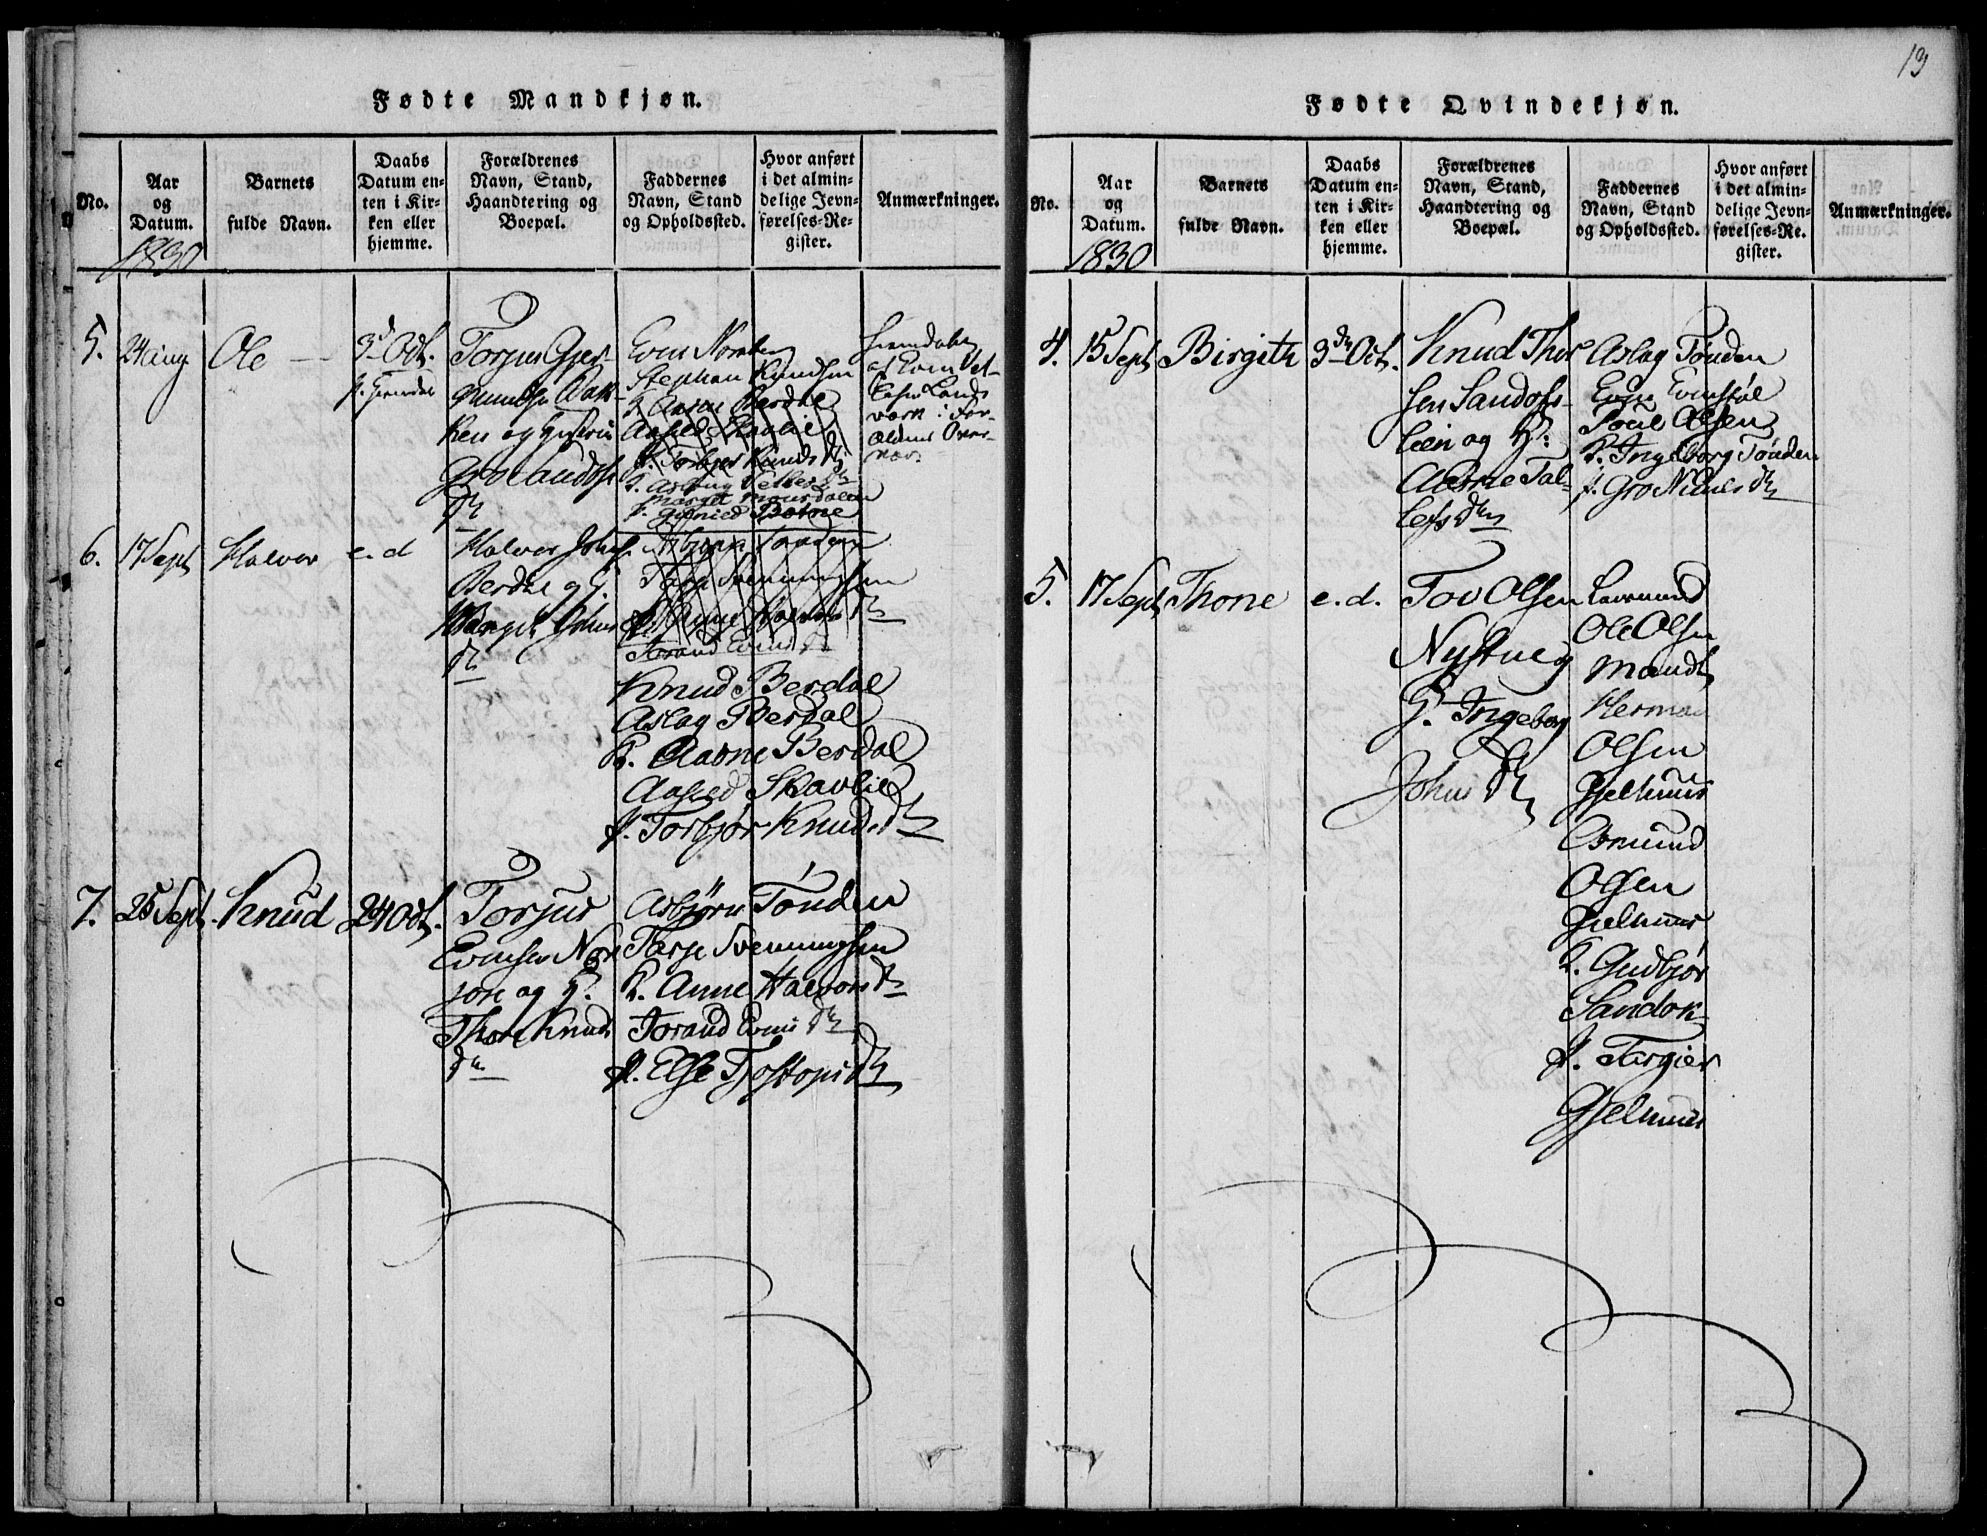 13
Fødte Mandkjøn.
No.
Aar
og
Datum.
1830
Barnets
fulde Navn.
Daabs
Datum en-
ten i Kir-
ken eller
hjemme.
Forældrenes
Navn, Stand,
Haandtering og
Boepæl.
Faddernes
Navn, Stand
og Opholdssted.
Hvor anført
i det almin-
delige Jevn-
førelses-Re-
gister.
Anmærkninger.
5.
24 Aug
Ole
3d Oct.
Torjus Gjer-
ken og
dtr
Even
Stephan Knudsen
K. Aavne Berdal
Aasled Skavlie
J. Torbjør Knuds dtr
Margit
Botne
hjemdøbt
af Even
i For-
6.
17 Sept
Halvor
e. d
Halvor Johs
Berdal og H.
Margit Johns
dtr
Asbjørn Tønden
Tarje Svenningsen
K. Anne Halvors dtr
Torand Evens dtr
Knud Berdal
Aslag Berdal
K. Aavne Berdal
Aasled Skavlie
J. Torbjør Knuds dtr
7.
25 Sept.
Knud
24 Oct.
Torjus
Evensen Nor
jore og H.
Thore Knuds
dtr
Asbjørn Tønden
Tarje Svenningsen
K. Anne Halvors dtr
Torand Evens dtr
J. Else Tjostops dtr
Fødte Qvindekjøn.
No.
Aar
og
Datum.
1830
Barnets
fulde Navn.
Daabs
Datum en-
ten i Kir-
ken eller
hjemme.
Forældrenes
Navn, Stand,
Haandtering og
Boepæl.
Faddernes
Navn, Stand
og Opholdssted.
Hvor anført
i det almin-
delige Jevn-
førelses-Re-
gister.
Anmærkninger.
4.
15 Sept
Birgith
3die Oct.
Knud Thor
sen Sandoks-
leen og H.
Aavne Tal-
lefs dtr
Aslag Tønden
Even Evenstøl
Poul Olsen
K. Ingeborg Tønden
J. Gro Niels dtr
5.
17 Sept
Thone
e. d.
Tov Olsen
Nystueig
H. Ingeborg
Johns dtr
Laurand
Ole Olsen
Mandt
Herman
Olsen
Gjelhuus
Osmund
Olsen
Gjelhuus
K. Gudbjør
Sandok
J. Targier
Gjelhuus